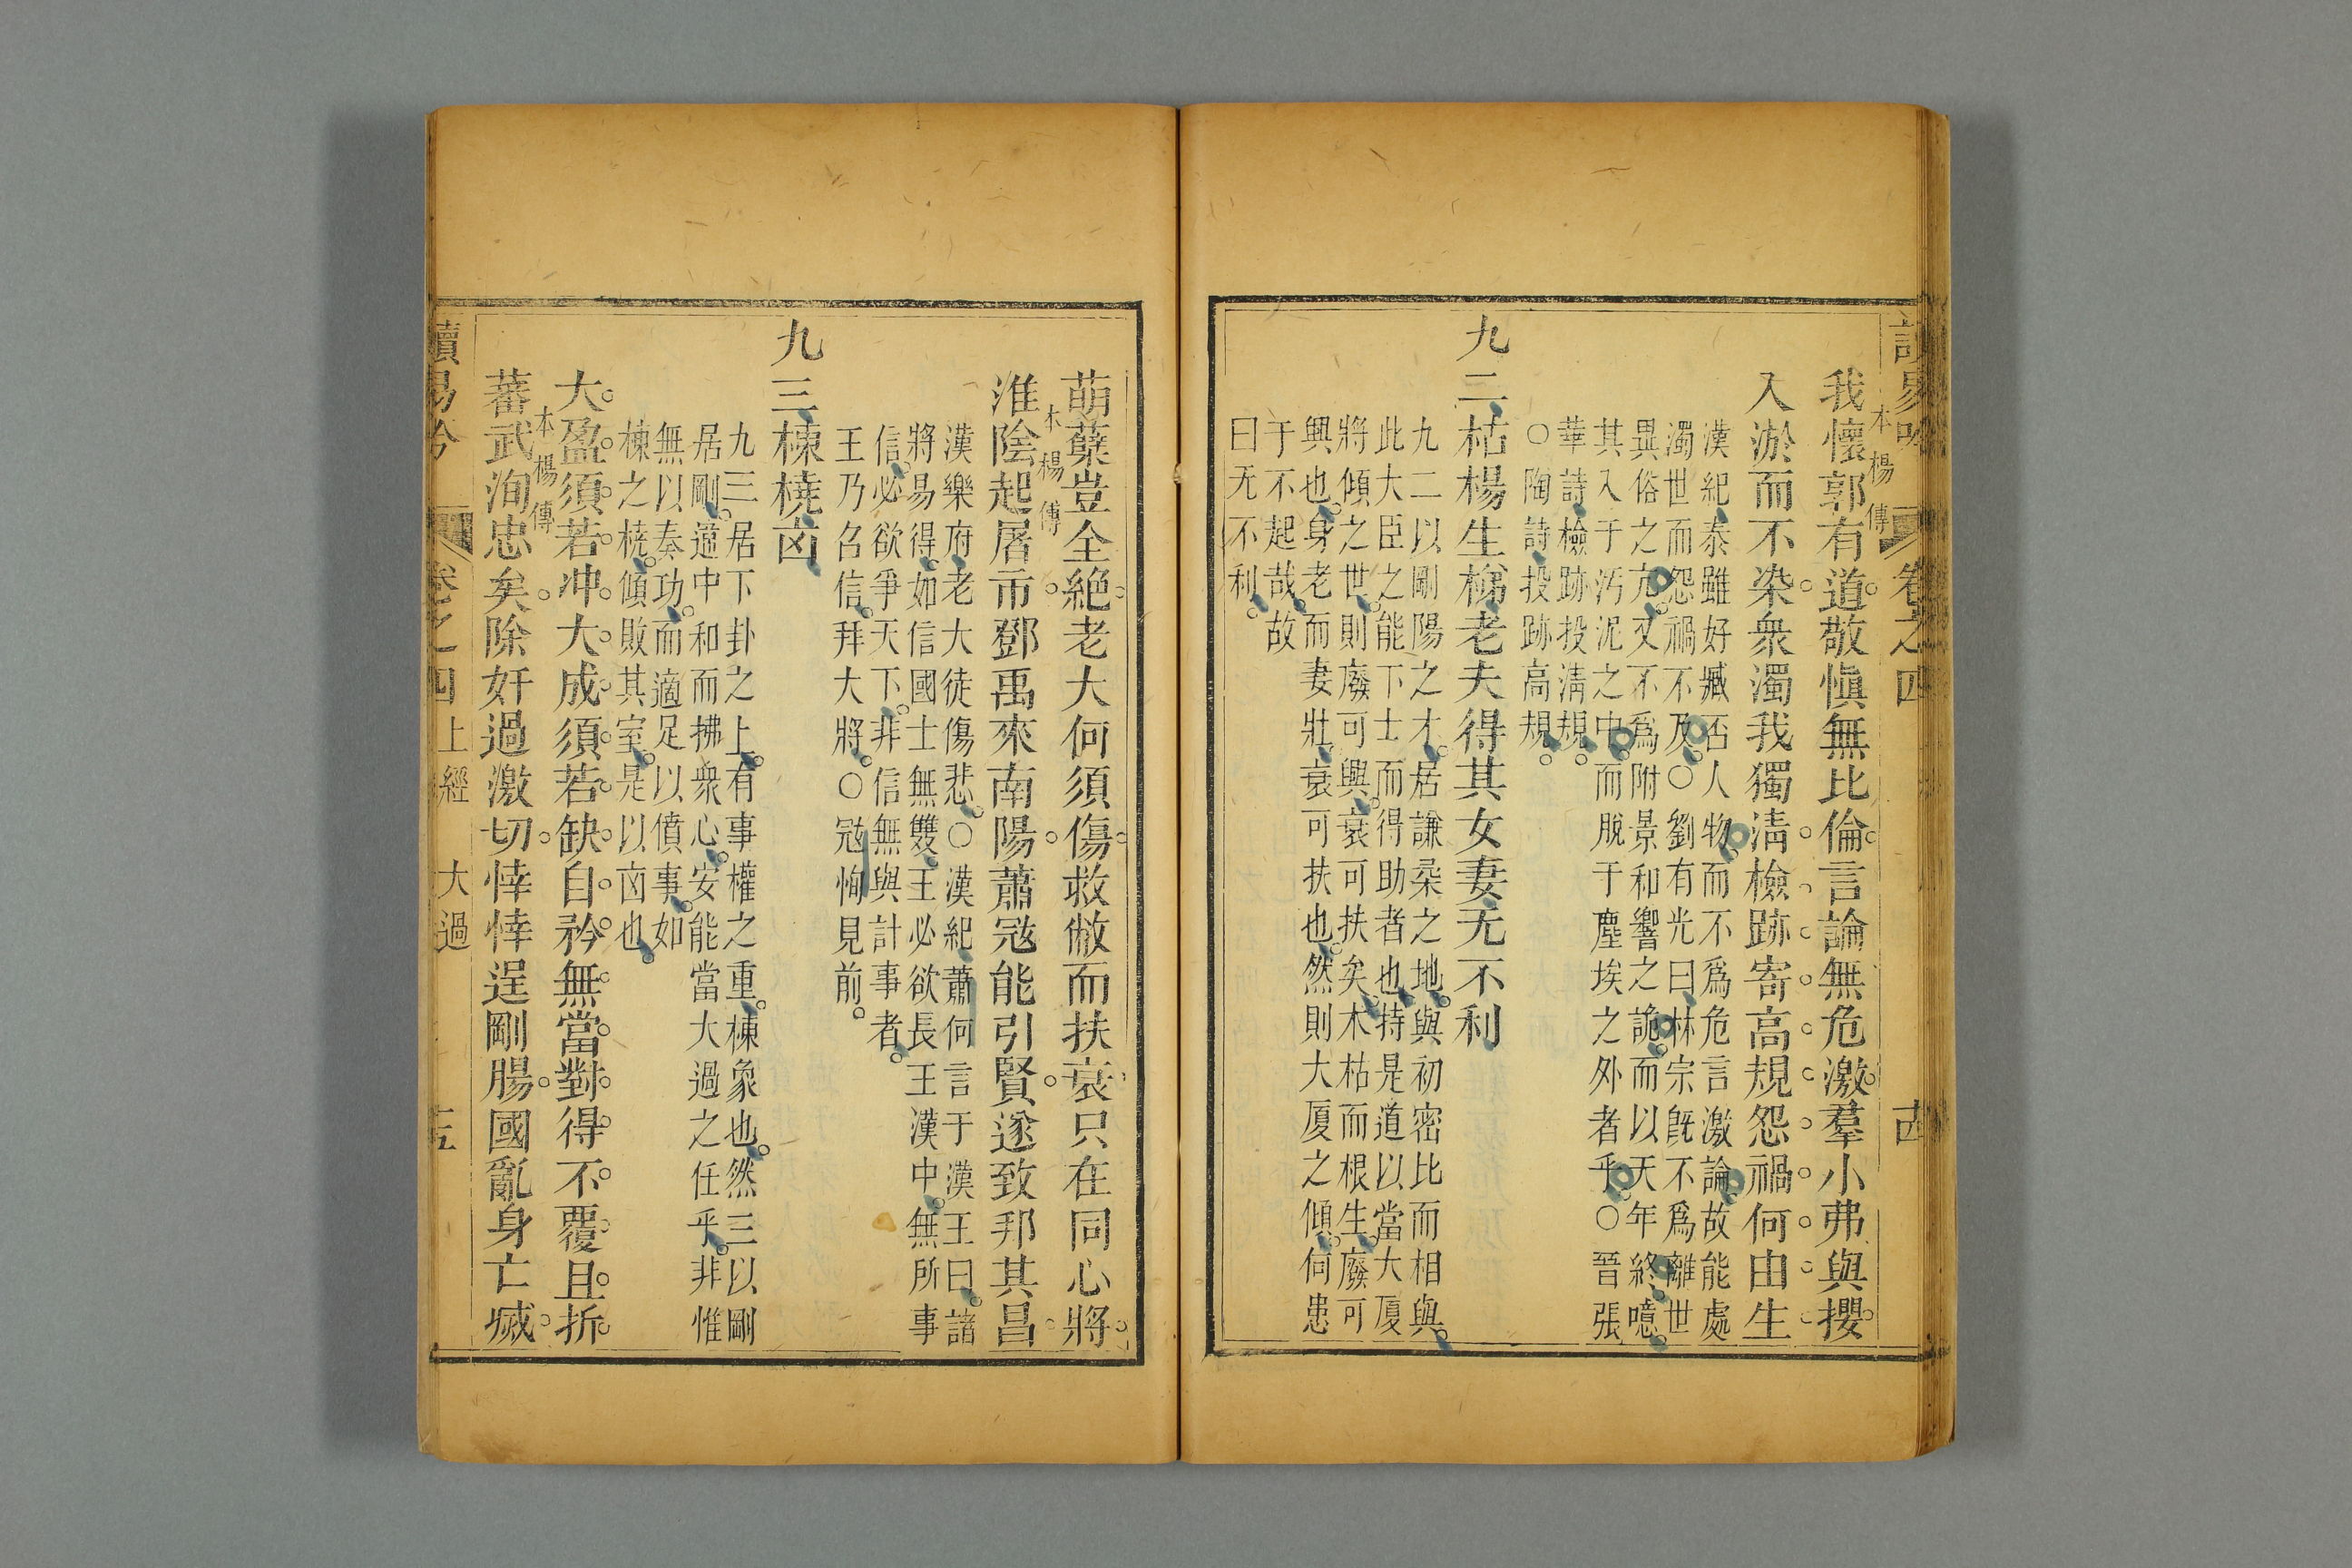 卷之四
我懷郭有道敬慎無比倫言論無危激羣小弗與攖
本楊傳
入淤而不染衆濁我獨淸檢跡寄高規怨禍何由生
漢紀泰雖好臧否人物而不爲危言激論故能處
濁世而怨禍不及○劉有光曰林宗旣不爲離世
異俗之亢又不爲附景和響之詭而以天年終噫
其入于汚泥之中而脫于塵埃之外者乎○晉張
華詩檢跡投淸規
○陶詩投跡高規
九二枯楊生稊老夫得其女妻无不利
九二以剛陽之才居謙柔之地與初密比而相與
此大臣之能下士而得助者也持是道以當大厦
將傾之世則廢可興衰可扶矣木枯而根生廢可
興也身老而妻壯衰可扶也然則大厦之傾何患
于不起哉故
曰无不利
萌蘖豈全絶老大何須傷救敝而扶衰只在同心將
本楊傳
淮陰起屠市鄧禹來南陽蕭冦能引賢遂致邦其昌
漢樂府老大徒傷悲○漢紀蕭何言于漢王曰諸
將易得如信國士無雙王必欲長王漢中無所事
信必欲爭天下非信無與計事者
王乃召信拜大將○冦恂見前
九三棟橈凶
九三居下卦之上有事權之重棟象也然三以剛
居剛違中和而拂衆心安能當大過之任乎非惟
無以奏功而適足以僨事如
棟之橈傾敗其室是以凶也
大盈須若冲大成須若缺自矜無當對得不覆且折
本楊傳
蕃武洵忠矣除奸過激切悻悻逞剛腸國亂身亡滅
讀易吟 卷之四 上經 大過